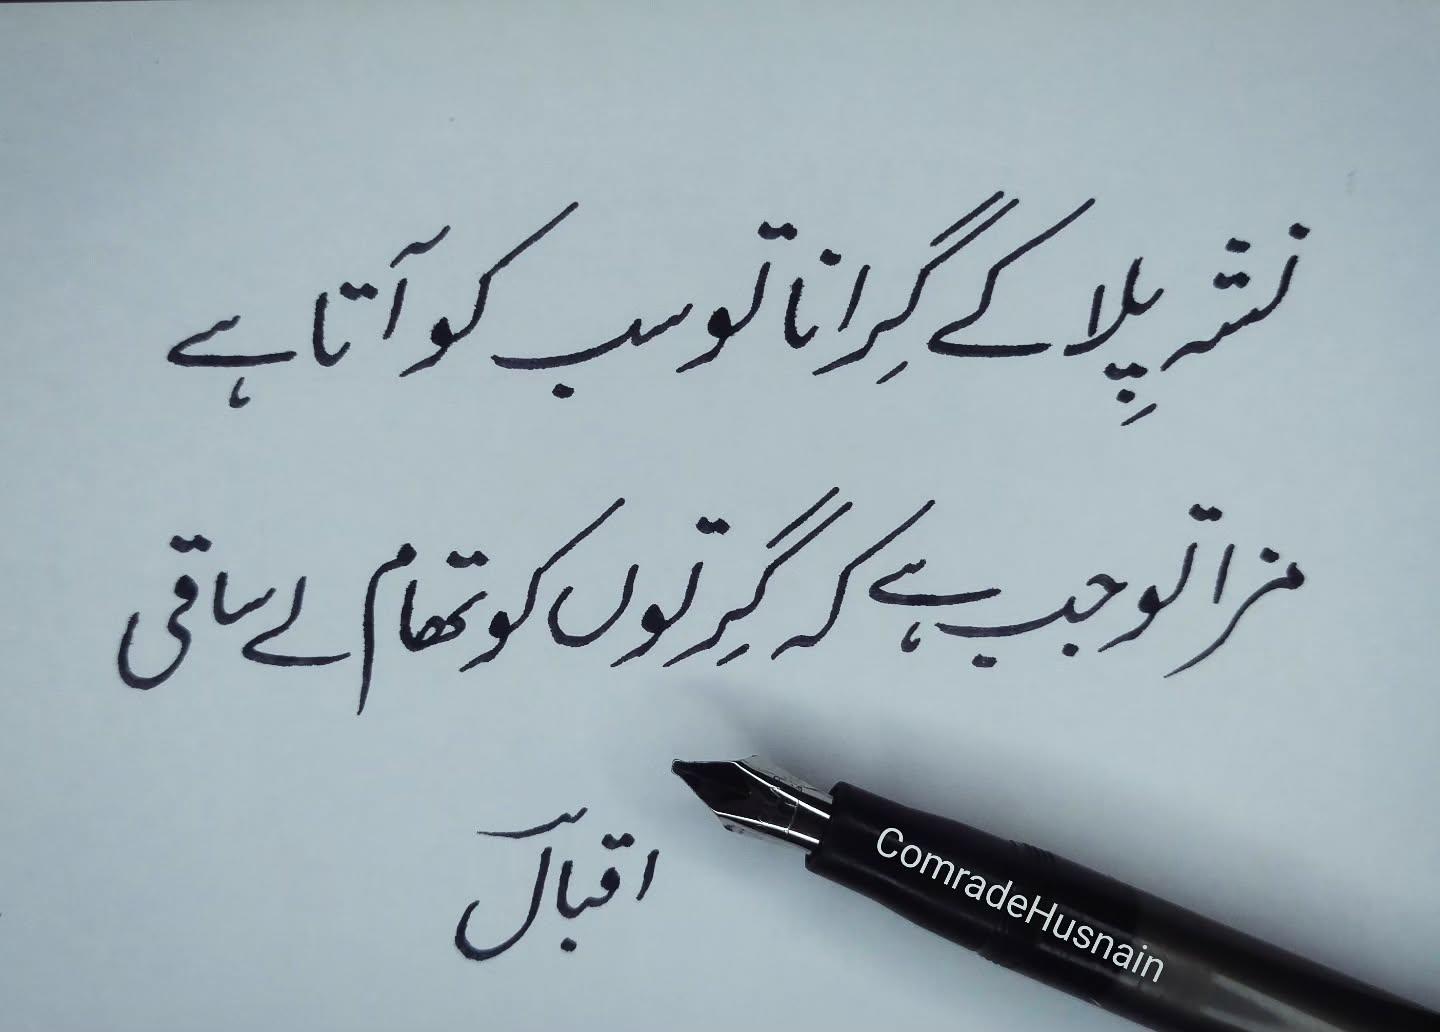 نشہ پِلا کے گِرانا تو سب کو آتا ہے
مزا تو جب ہے کہ گِرتوں کو تھام لے ساقی
اقبالؔ
ComradeHusnain